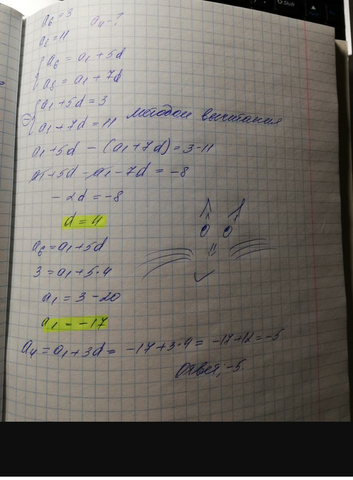 a₆ = 3 a₄ - ?
a₈ = 11
{ a₆ = a₁ + 5d
a₈ = a₁ + 7d
{ a₁ + 5d = 3
a₁ + 7d = 11 методом вычитания
a₁ + 5d - (a₁ + 7d) = 3 - 11
a₁ + 5d - a₁ - 7d = -8
-2d = -8
d = 4
a₆ = a₁ + 5d
3 = a₁ + 5·4
a₁ = 3 - 20
a₁ = -17
a₄ = a₁ + 3d = -17 + 3·4 = -17 + 12 = -5
Ответ: -5